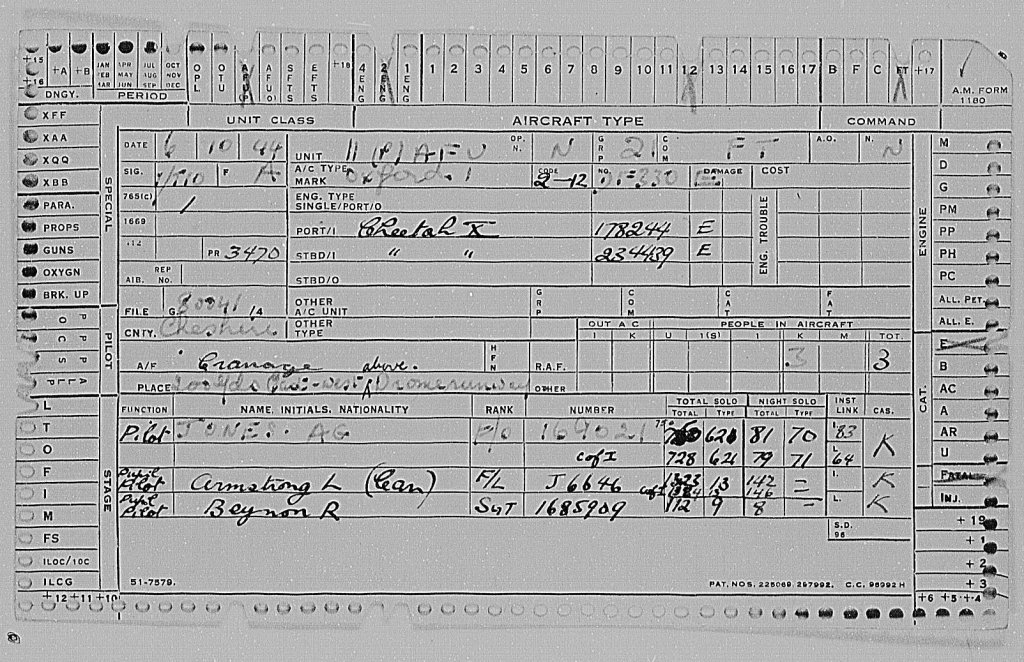 +15 +A +B JAN APR JUL OCT OPL OTU AFU AFUO SFTS EFTS +18 4ENG 2ENG 1ENG 1 2 3 4 5 6 7 8 9 10 11 12 13 14 15 16 17 B F C FT +17
FEB MAY AUG NOV
+16 MAR JUN SEP DEC
DNGY. PERIOD A.M. FORM 1180
UNIT CLASS AIRCRAFT TYPE COMMAND
XFF
XAA
XQQ
XBB
PARA.
PROPS
GUNS
OXYGN
BRK. UP
SPECIAL
PILOT
STAGE
DATE 6 10 44 UNIT 11 (P) AFU OP. N. N GRP 21 COM FT A.O. N. N
SIG. F A A/C TYPE MARK Oxford. 1 CODE 2-12 NO. DAMAGE E COST
765(c) 1 ENG. TYPE SINGLE/PORT/O
1669 PORT/I Cheetah X 178244 E ENG. TROUBLE
412 PR 3470 STBD/I " " 234439 E
AIB. REP No. STBD/O
FILE G. 80041/4 OTHER A/C UNIT GRP COM CAT FAT
CNTY. Cheshire OTHER TYPE OUT A C PEOPLE IN AIRCRAFT
I K U I(S) I K M TOT.
A/F Cranage above. HFN R.A.F. 3 3
PLACE Drome runway OTHER
FUNCTION NAME, INITIALS, NATIONALITY RANK NUMBER TOTAL SOLO NIGHT SOLO INST LINK CAS.
TOTAL TYPE TOTAL TYPE
Pilot JONES. AG F/O 169021 621 81 70 I. 83 K
cof I 728 621 79 71 L. 64
Pupil Pilot Armstrong L (Can) F/L J6646 1323 13 142 = I. K
cof I 1324 13 146
Pupil Pilot Beynon R SGT 1685909 112 9 8 - L. K
S.D. 96
51-7579. PAT. NOS. 225069. 297992. C.C. 96992 H
L
T
O
F
I
M
FS
ILOC/10C
ILCG
+12 +11 +10
M
D
G
PM
PP
PH
PC
ALL. PET.
ALL. E.
ENGINE
E
B
AC
A
AR
U
FATAL
INJ.
CAT.
+19
+1
+2
+3
+6 +5 +4